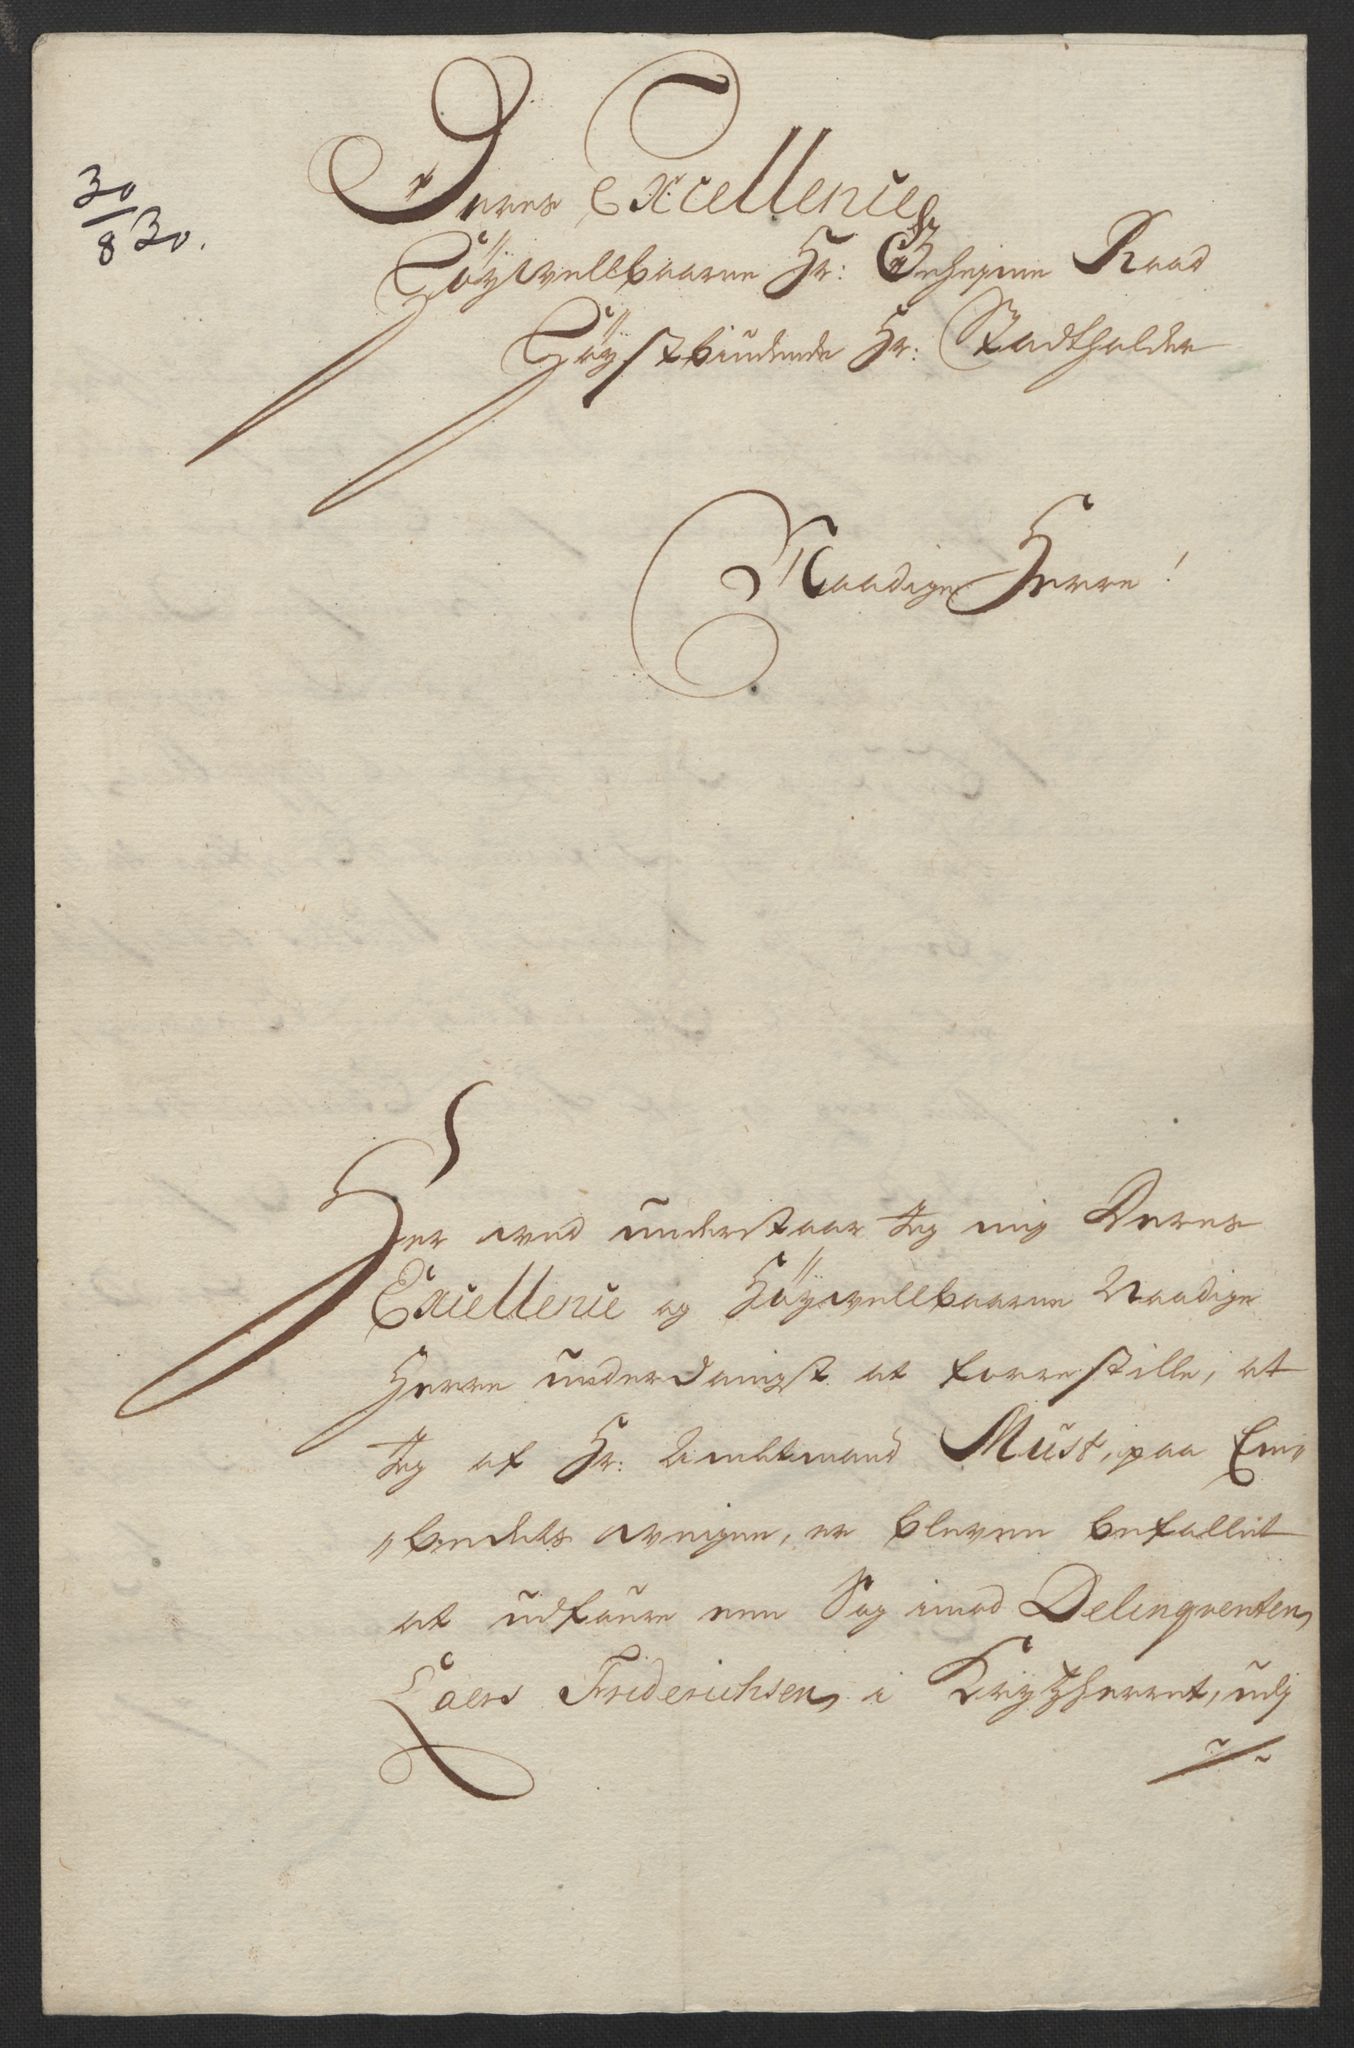 30/8 30.
Deres Excellence
Höÿwelbaarne Hr: Geheyme Raad
Höÿstbiudende Hr: Stadtholder
Naadige Herre!
Her wed understaar Jeg mig Deres
Excellence og Höÿwellbaarne Naadige
Herre underdanigst at forrestille, at
Jeg af Hr: Ambtmand Must, paa Em„
„bedets weigne, er bleven befallet
at udføure een Sag imod Delinqventen
Laers Friderichsen i Kryttzherret, udj